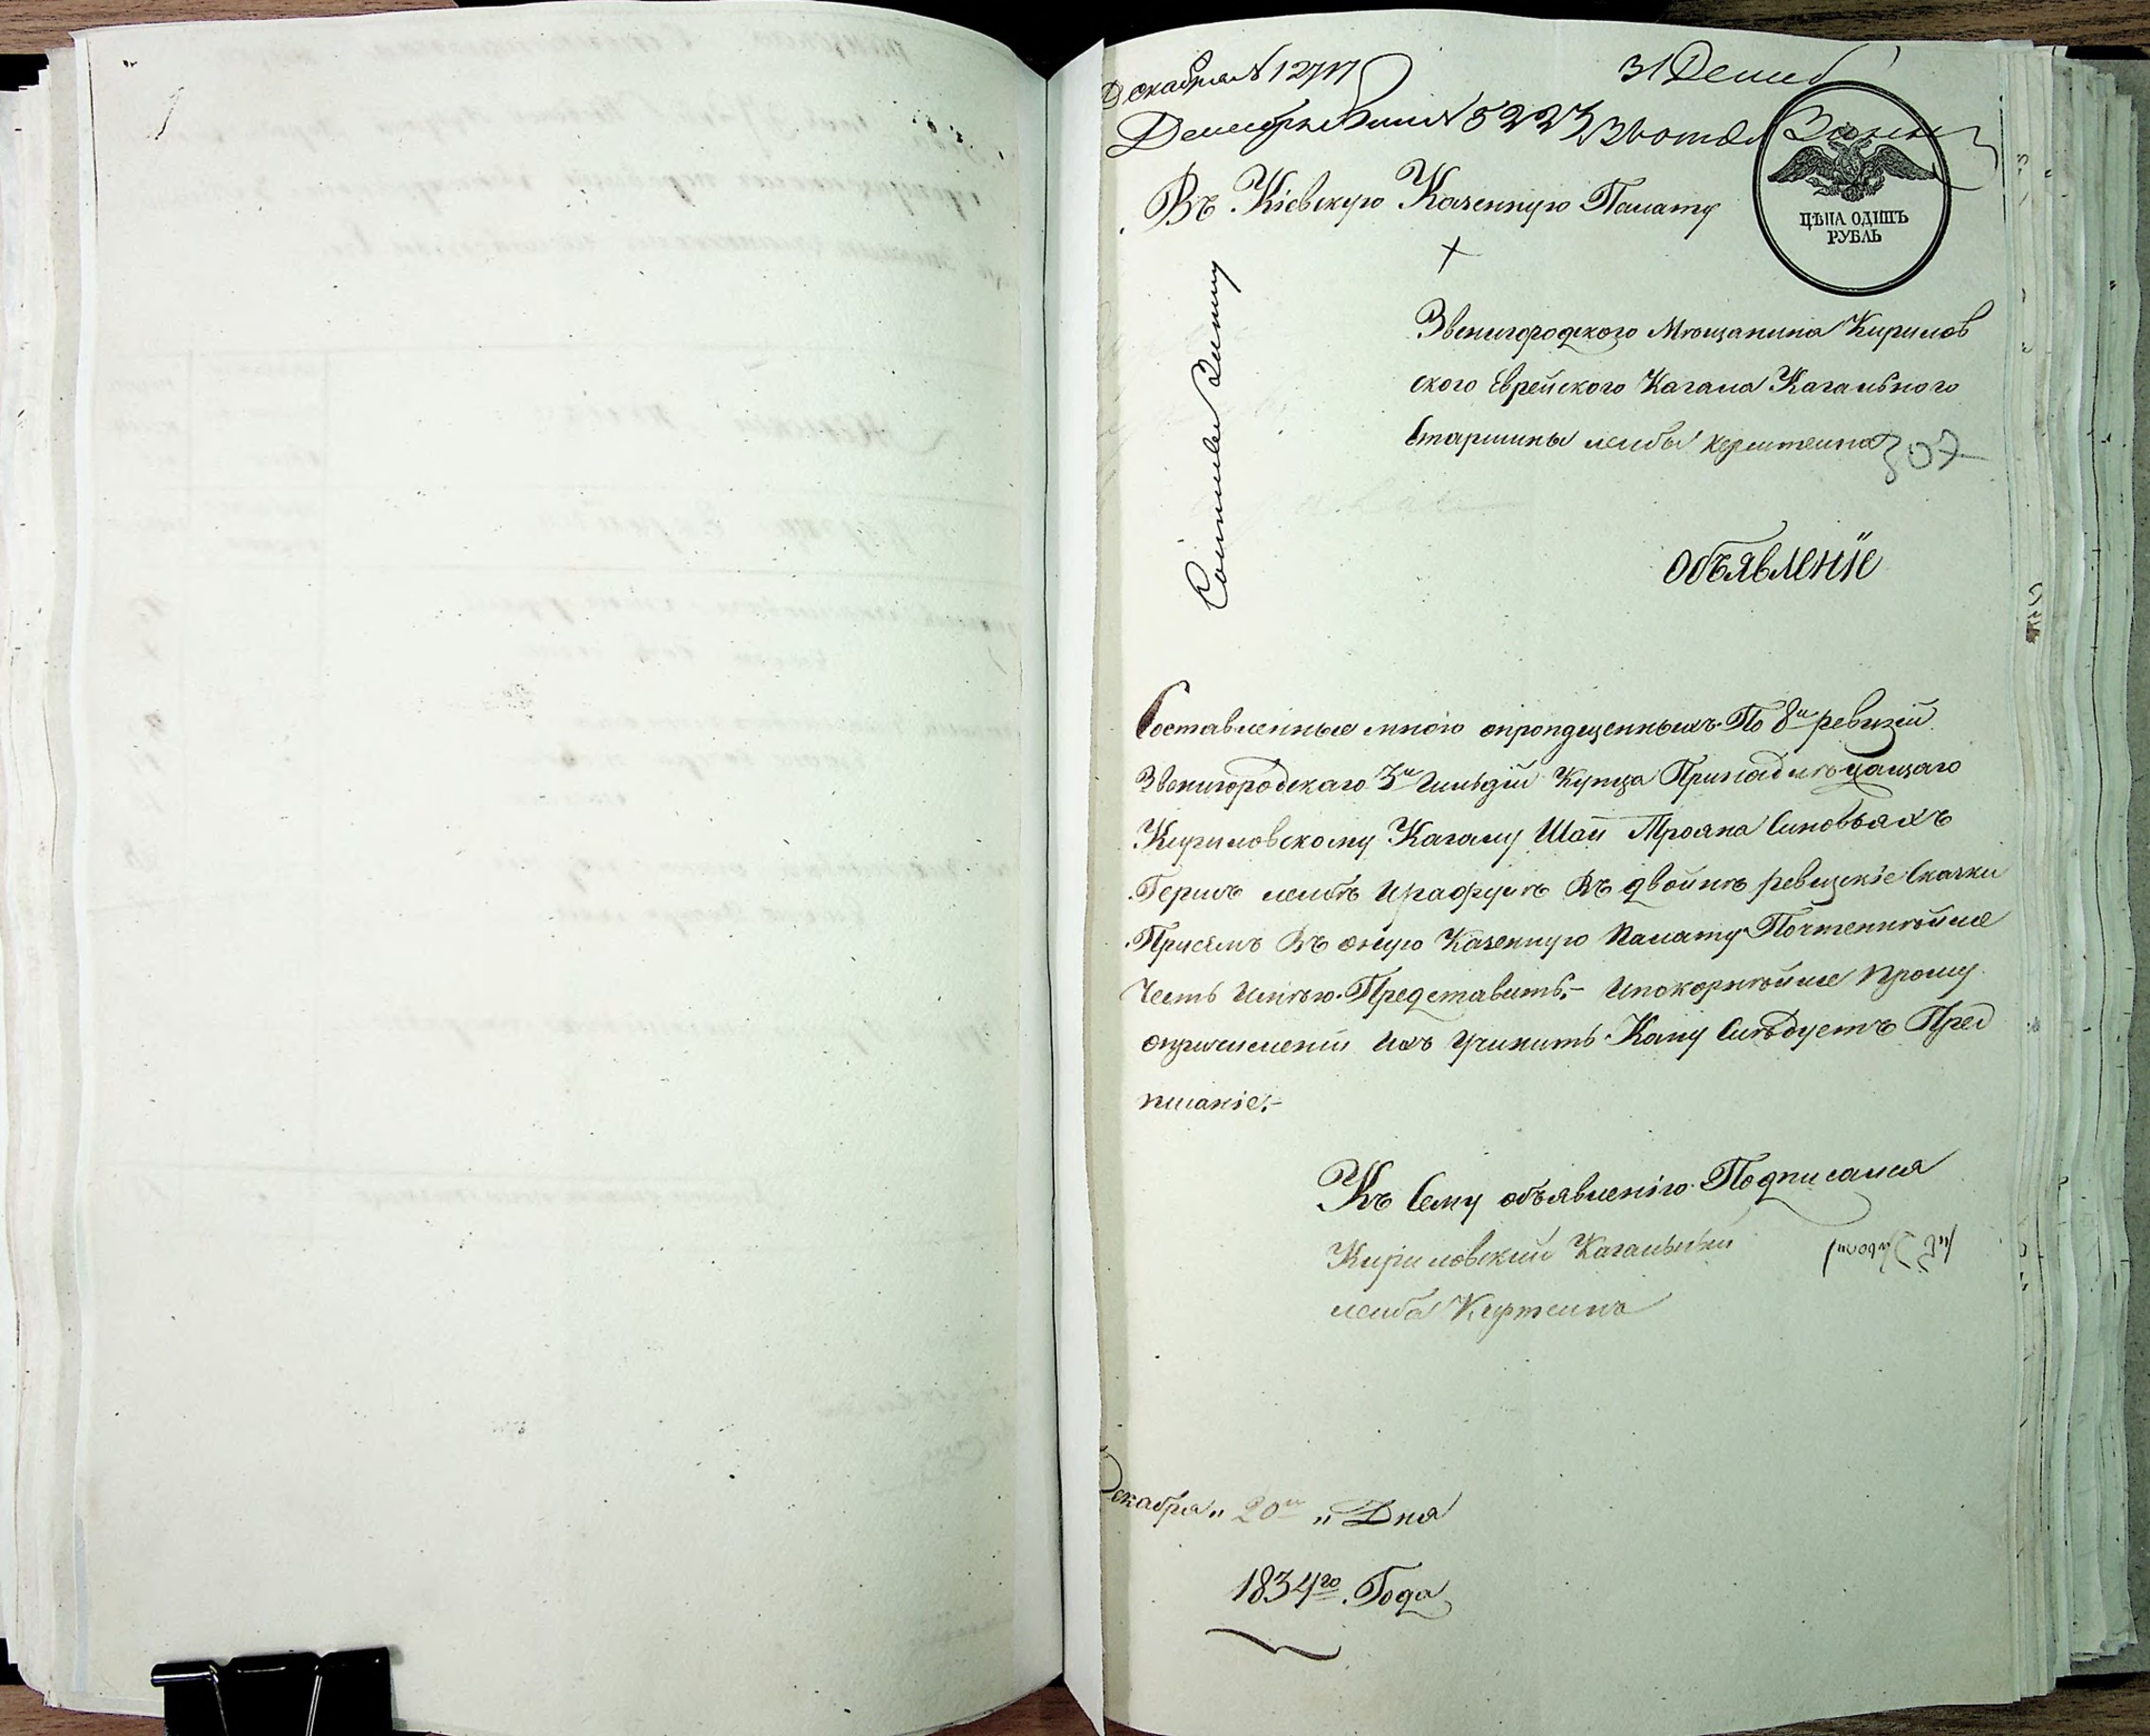 Декабря № 12717
31 Декаб
№ 5223 3 отдел
Въ Кіевскую Казенную Палату
ЦѢНА ОДИНЪ
РУБЛЬ
Звенигородского Мѣщанина Кирилов
ского Еврейского Кагала Кагального
Старшины лейбы Керштейна
307
Объявленіе
Составленные мною опропущенныхъ По 8й ревизіи
Звенигородскаго 3й Гильдіи Купца Принадлѣжащаго
Кириловскому Кагалу Шаи Трояна Сыновьяхъ
Гершъ лейбѣ Ирафулѣ Въ двойнѣ ревизскіе Сказки
Присемъ Въ оную Казенную Палату Почтеннѣйше
Честь Имѣю Представить,- Ипокорнѣйше Прошу
опричисленіи Ихъ Учинить Кому Слѣдуетъ Пред
писаніе,-
Къ Сему объявленію Подписался
Кириловский Кагальный
лейба Керштейнъ
Декабря „ 20го „ Дня
1834го Года